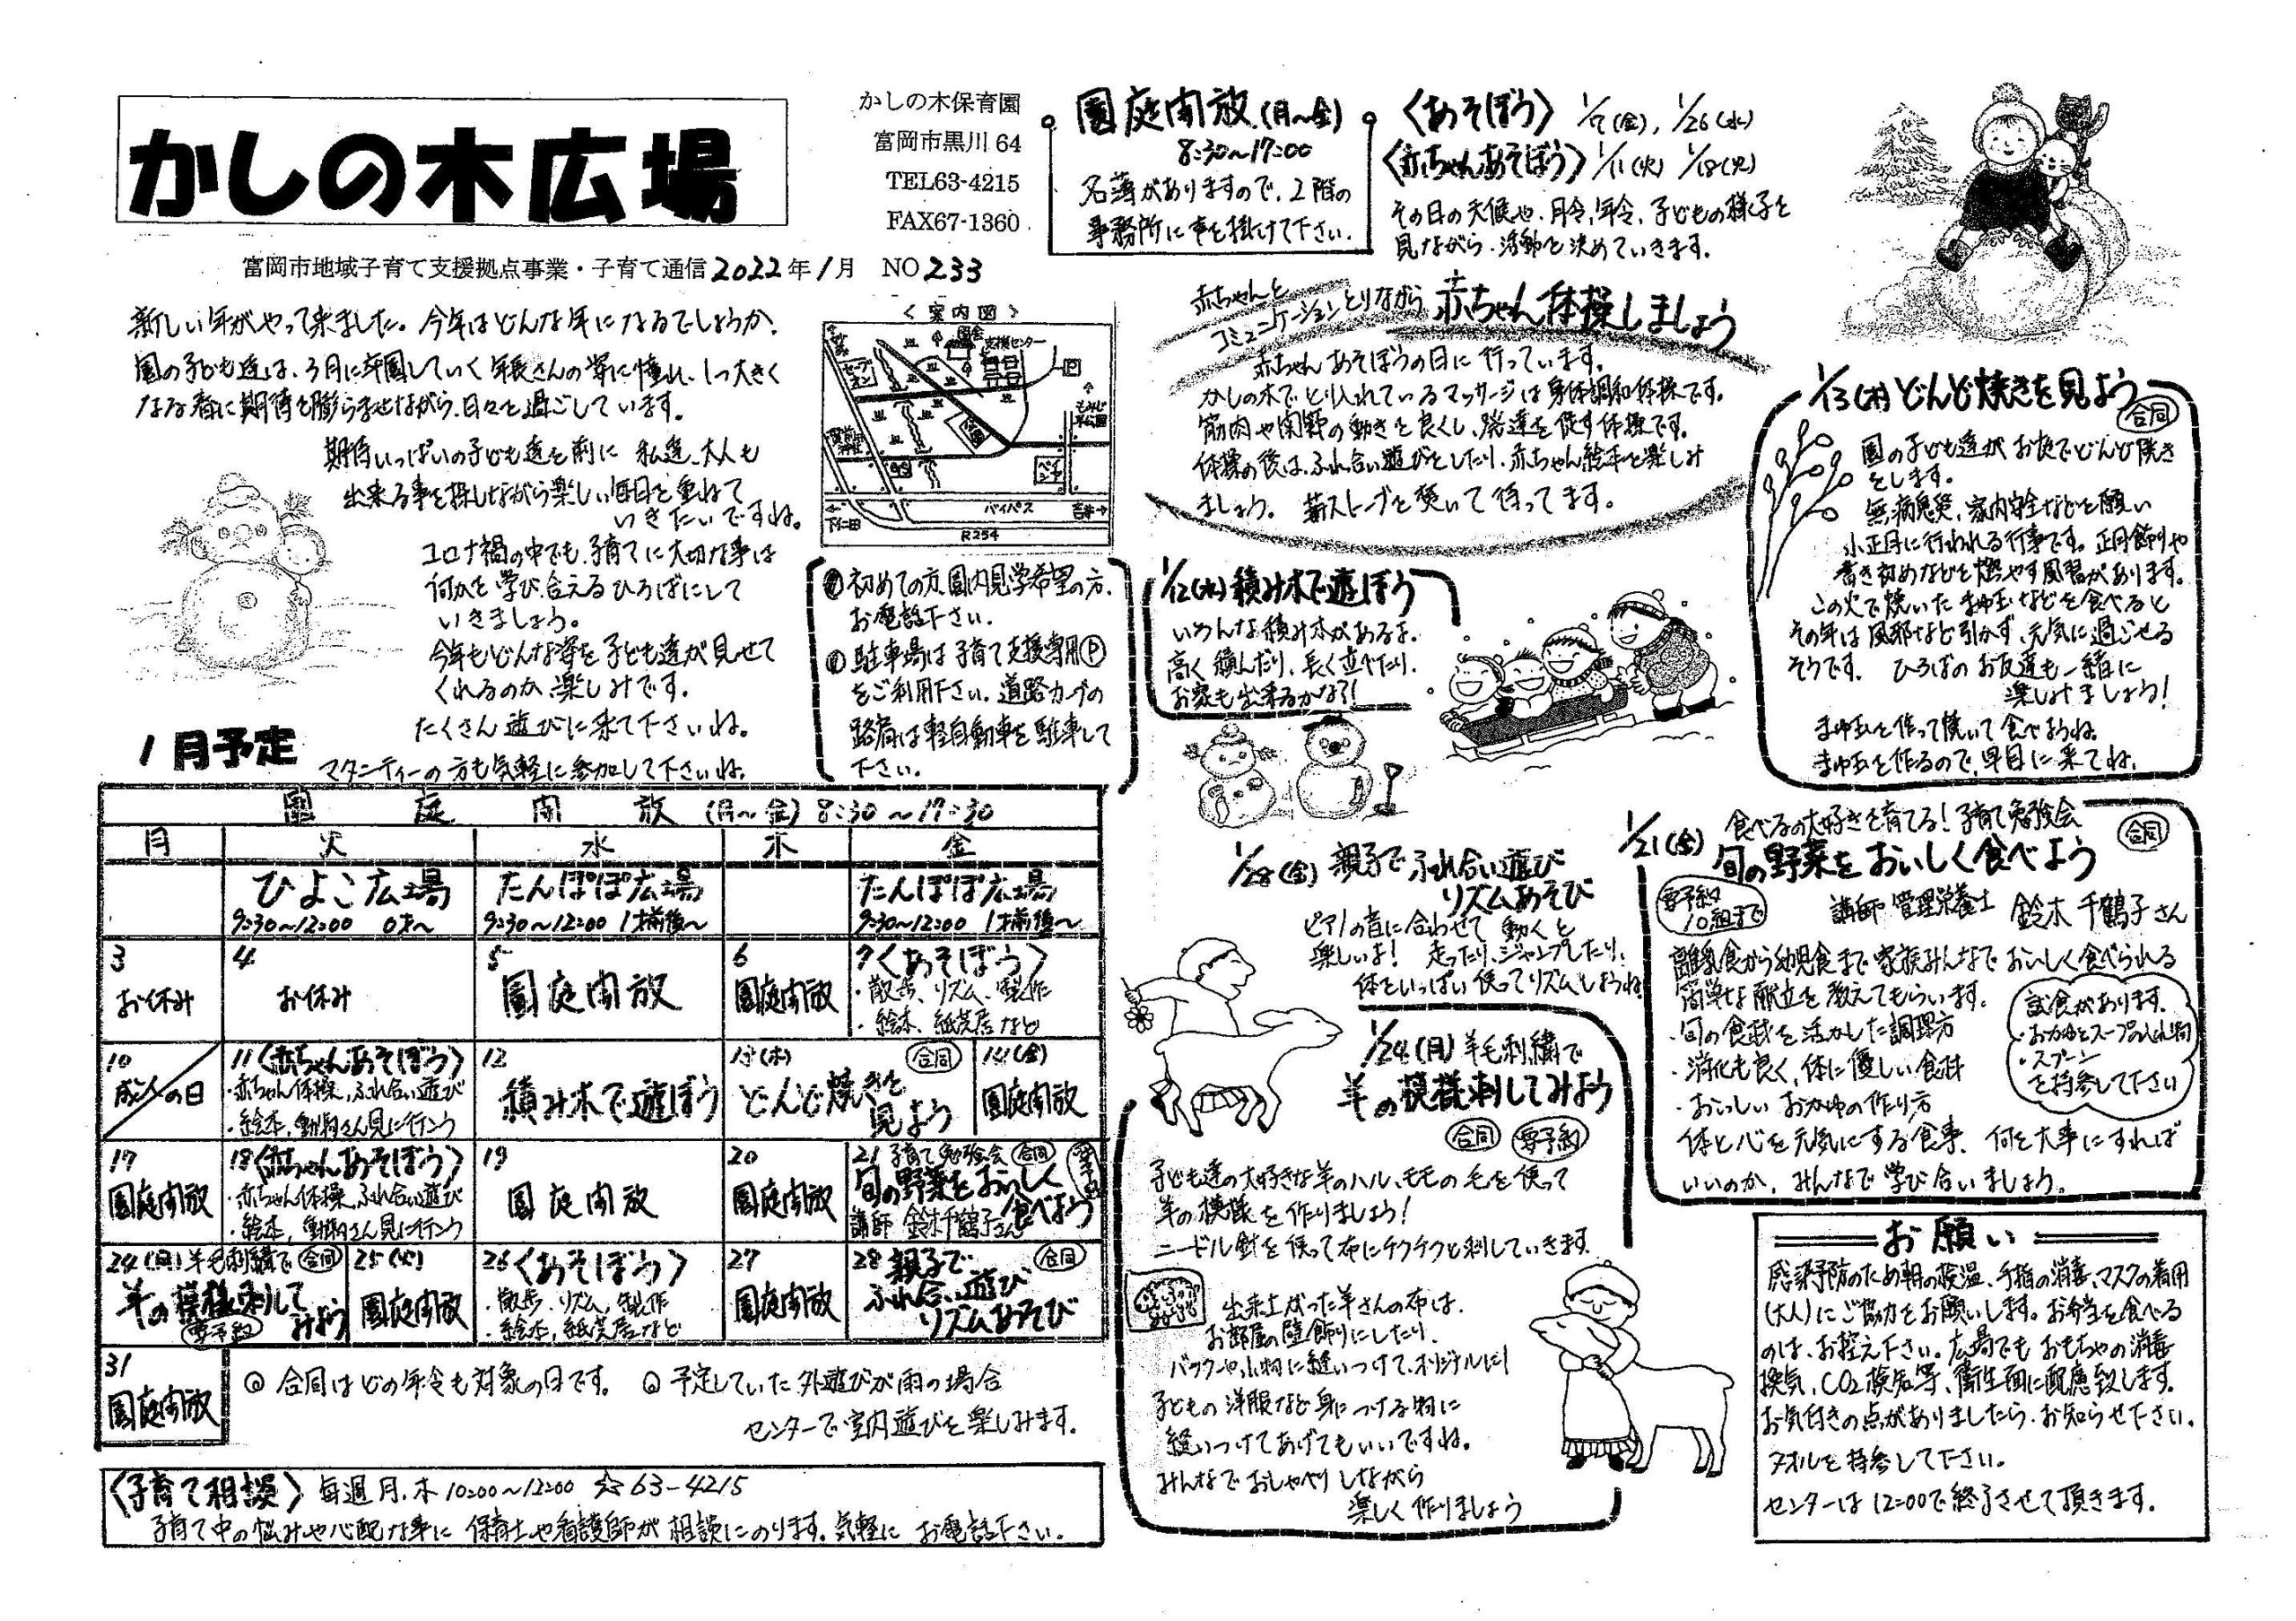 かしの木広場
かしの木保育園
富岡市黒川 64
TEL63-4215
FAX67-1360
富岡市地域子育て支援拠点事業・子育て通信 2022年1月 NO 233
新しい年がやって来ました。今年はどんな年になるでしょうか。
園の子ども達は、3月に卒園していく年長さんの姿に憧れ、1つ大きく
なる春に期待を膨らませながら、日々を過ごしています。
期待いっぱいの子ども達を前に 私達、大人も
出来る事を探しながら楽しい毎日を重ねて
いきたいですね。
コロナ禍の中でも、子育てに大切な事は
何かを学び合えるひろばにして
いきましょう。
今年もどんな姿を子ども達が見せて
くれるのか楽しみです。
たくさん遊びに来て下さいね。
マタニティーの方も気軽に参加して下さいね。
〈案内図〉
支援センター
バイパス
下仁田
吉井→
R254
初めての方、園内見学希望の方、
お電話下さい。
駐車場は子育て支援専用Ⓟ
をご利用下さい。道路カーブの
路肩は軽自動車を駐車して
下さい。
園庭開放(月〜金)
8:30〜17:00
名簿がありますので、2階の
事務所に声を掛けて下さい。
〈あそぼう〉 1/7(金), 1/26(水)
〈赤ちゃんあそぼう〉 1/11(火) 1/18(火)
その日の天候や、月令、年令、子どもの様子を
見ながら、活動を決めていきます。
赤ちゃんと
コミュニケーションとりながら 赤ちゃん体操しましょう
赤ちゃんあそぼうの日に行っています。
かしの木でとり入れているマッサージは身体調和体操です。
筋肉や関節の動きを良くし、発達を促す体操です。
体操の後は、ふれ合い遊びをしたり、赤ちゃん絵本を楽しみ
ましょう。 薪ストーブを焚いて待ってます。
1/12(水) 積み木で遊ぼう
いろんな積み木があるよ。
高く積んだり、長く立てたり、
お家も出来るかな?!
1/13(木) どんど焼きを見よう
合同
園の子ども達がお庭でどんど焼き
をします。
無病息災、家内安全などを願い
小正月に行われる行事です。正月飾りや
書き初めなどを燃やす風習があります。
この火で焼いたまゆ玉などを食べると
その年は風邪など引かず、元気に過ごせる
そうです。 ひろばのお友達も一緒に
楽しみましょう!
まゆ玉を作って焼いて食べようね。
まゆ玉を作るので、早目に来てね。
1月予定
園庭開放 (月〜金) 8:30〜17:30
月 火 水 木 金
ひよこ広場 たんぽぽ広場 たんぽぽ広場
9:30〜12:00 0才〜 9:30〜12:00 1才前後〜 9:30〜12:00 1才前後〜
3 お休み
4 お休み
5 園庭開放
6 園庭開放
7〈あそぼう〉
・散歩、リズム、製作
・絵本、紙芝居など
10 成人の日
11〈赤ちゃんあそぼう〉
・赤ちゃん体操、ふれ合い遊び
・絵本、動物さん見に行こう
12 積み木で遊ぼう
13(木) 合同
どんど焼きを
見よう
14(金) 園庭開放
17 園庭開放
18〈赤ちゃんあそぼう〉
・赤ちゃん体操、ふれ合い遊び
・絵本、動物さん見に行こう
19 園庭開放
20 園庭開放
21 子育て勉強会 合同 要予約
旬の野菜をおいしく
食べよう
講師 鈴木千鶴子さん
24(月) 羊毛刺繍で 合同
羊の模様刺して
みよう
要予約
25(火) 園庭開放
26〈あそぼう〉
・散歩、リズム、製作
・絵本、紙芝居など
27 園庭開放
28 親子で 合同
ふれ合い遊び
リズムあそび
31 園庭開放
◎ 合同はどの年令も対象の日です。 ◎ 予定していた外遊びが雨の場合
センターで室内遊びを楽しみます。
〈子育て相談〉 毎週月.木 10:00〜12:00 ☆63-4215
子育て中の悩みや心配な事に 保育士や看護師が相談にのります。気軽に お電話下さい。
1/28(金) 親子でふれ合い遊び
リズムあそび
ピアノの音に合わせて 動くと
楽しいよ! 走ったり、ジャンプしたり、
体をいっぱい使ってリズムしようね
1/24(月) 羊毛刺繍で
羊の模様刺してみよう
合同 要予約
子ども達の大好きな羊のハル、モモの毛を使って
羊の模様を作りましょう!
ニードル針を使って布にチクチクと刺していきます。
出来上がった羊さんの布は、
お部屋の壁飾りにしたり、
バックや小物に縫いつけて、オリジナルに!
子どもの洋服など身につける物に
縫いつけてあげてもいいですね。
みんなでおしゃべりしながら
楽しく作りましょう
1/21(金) 食べるの大好きを育てる!子育て勉強会
旬の野菜をおいしく食べよう
合同
要予約
10組まで
講師 管理栄養士 鈴木千鶴子さん
離乳食から幼児食まで家族みんなでおいしく食べられる
簡単な献立を教えてもらいます。
・旬の食材を活かした調理方
・消化も良く、体に優しい食材
・おいしいおかゆの作り方
体と心を元気にする食事、何を大事にすれば
いいのか、みんなで学び合いましょう。
試食があります。
・おかゆとスープの入れ物
・スプーン
を持参して下さい
お願い
感染予防のため朝の検温、手指の消毒、マスクの着用
(大人)にご協力をお願いします。お弁当を食べる
のは、お控え下さい。広場でも おもちゃの消毒
換気、CO2検知等、衛生面に配慮致します。
お気付きの点がありましたら、お知らせ下さい。
タオルを持参して下さい。
センターは12:00で終了させて頂きます。